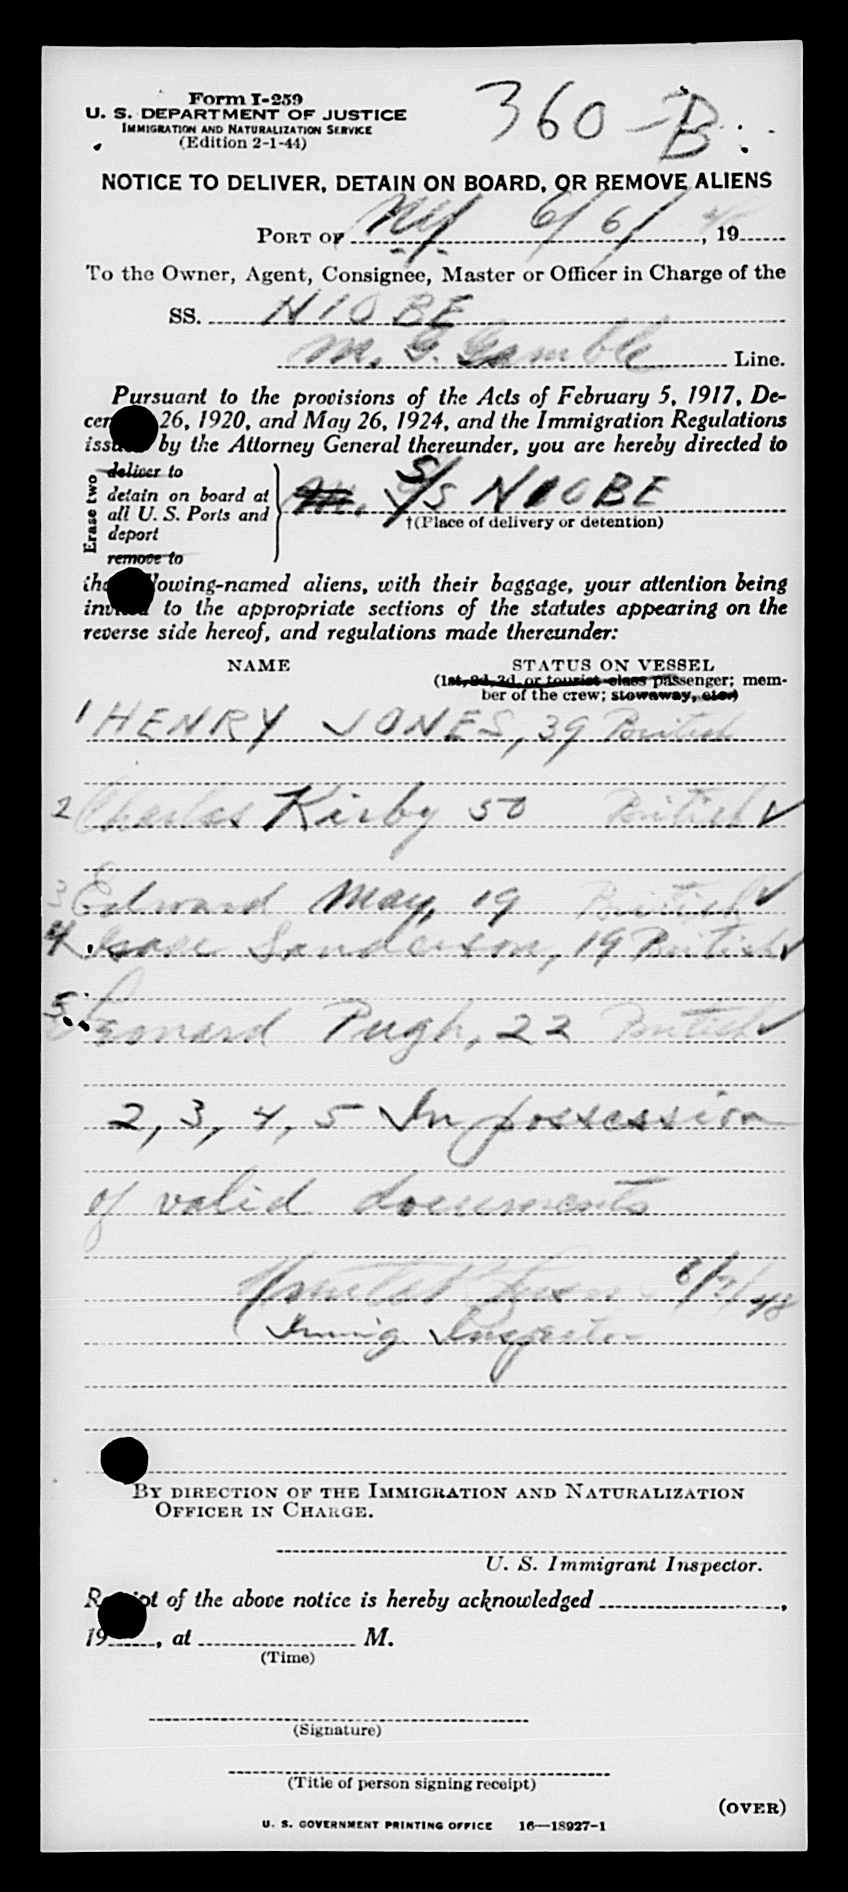 Form I-259
U. S. DEPARTMENT OF JUSTICE
IMMIGRATION AND NATURALIZATION SERVICE
(Edition 2-1-44)
360-B
NOTICE TO DELIVER, DETAIN ON BOARD, OR REMOVE ALIENS
PORT OF NY 6/6/, 19
To the Owner, Agent, Consignee, Master or Officer in Charge of the
SS. NIOBE
M. G. Gamble Line.
Pursuant to the provisions of the Acts of February 5, 1917, De-
cem 26, 1920, and May 26, 1924, and the Immigration Regulations
issued by the Attorney General thereunder, you are hereby directed to
Erase two
deliver to
detain on board at
all U. S. Ports and
deport
remove to
S/S NIOBE
†(Place of delivery or detention)
the following-named aliens, with their baggage, your attention being
invited to the appropriate sections of the statutes appearing on the
reverse side hereof, and regulations made thereunder:
NAME STATUS ON VESSEL
(1st, 2d, 3d, or tourist class passenger; mem-
ber of the crew; stowaway, etc.)
1 HENRY JONES, 39 British
2 Charles Kirby 50 British ✓
3 Edward May, 19 British ✓
4 Isaac Sanderson, 19 British ✓
5 Leonard Pugh, 22 British ✓
2, 3, 4, 5 In possession
of valid documents
6/7/48
Immig Inspector
BY DIRECTION OF THE IMMIGRATION AND NATURALIZATION
OFFICER IN CHARGE.
U. S. Immigrant Inspector.
Receipt of the above notice is hereby acknowledged ,
19 , at M.
(Time)
(Signature)
(Title of person signing receipt)
(OVER)
U. S. GOVERNMENT PRINTING OFFICE 16—18927-1